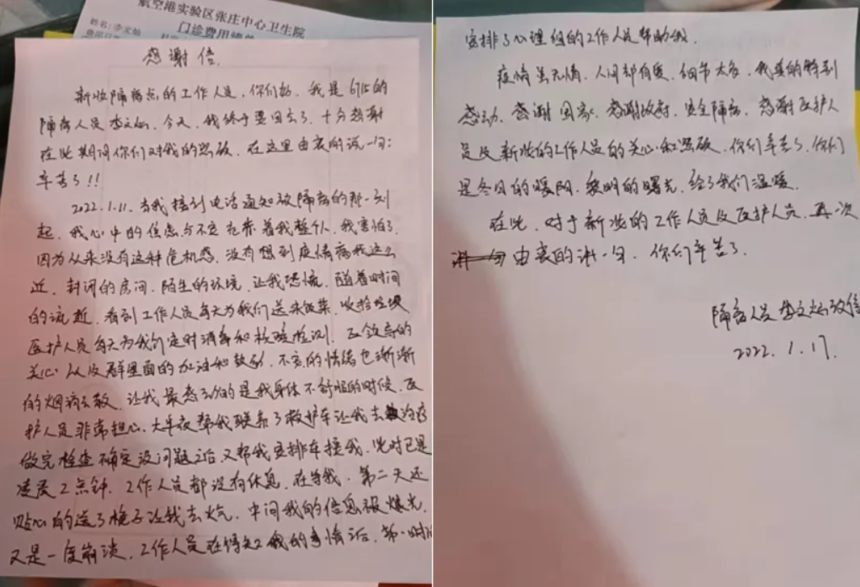 航空港实验区张庄中心卫生院
门诊费用清单
姓名:
感谢信
新妆隔离点的工作人员,你们好,我是615的
隔离人员李文灿,今天,我终于要回去了,十分感谢
在此期间你们对我的照顾,在这里由衷的说一句:
辛苦了!!
2022.1.11.当我接到电话通知被隔离的那一刻
起,我心中的焦虑与不安充斥着我整个人,我害怕了,
因为从来没有这种危机感,没有想到疫情离我这么
近,封闭的房间,陌生的环境,让我恐慌,随着时间
的流逝,看到工作人员每天为我们送来饭菜,收捡垃圾
医护人员每天为我们定时消毒和核酸检测,及领导的
关心以及群里面的加油和鼓励,不安的情绪也渐渐
的烟消云散,让我最感动的是我身体不舒服的时候,医
护人员非常担心,大半夜帮我联系了救护车让我去治疗
做完检查确定没问题之后,又帮我安排车接我,此时已是
凌晨2点钟,工作人员都没有休息,在等我,第二天还
贴心的送了梨子让我去火气,中间我的信息被爆光,
又是一度崩溃,工作人员在得知我的事情后,第一时间
安排了心理组的工作人员帮助我.
疫情虽无情,人间都有爱,细节太多,我真的特别
感动,感谢国家,感谢政府,安全隔离,感谢医护人
员及新妆的工作人员的关心和照顾,你们辛苦了,你们
是冬日的暖阳,黎明的曙光,给了我们温暖
在此,对于新妆的工作人员及医护人员,再次
由衷的说一句,你们辛苦了.
隔离人员李文灿致信
2022.1.17.